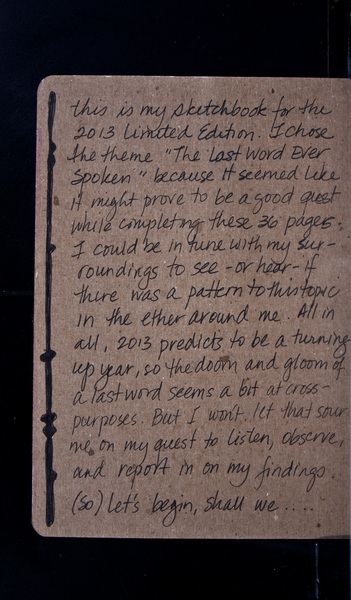 this is my sketchbook for the
2013 Limited Edition. I chose
the theme "The Last Word Ever
Spoken" because it seemed like
it might prove to be a good quest
while completing these 36 pages.
I could be in tune with my sur-
roundings to see -or hear- if
there was a pattern to this topic
in the ether around me. All in
all, 2013 predicts to be a turning
up year, so the doom and gloom of
a last word seems a bit at cross-
purposes. But I won't let that sour
me on my quest to listen, observe,
and report in on my findings.
(So) Let's begin, shall we ....